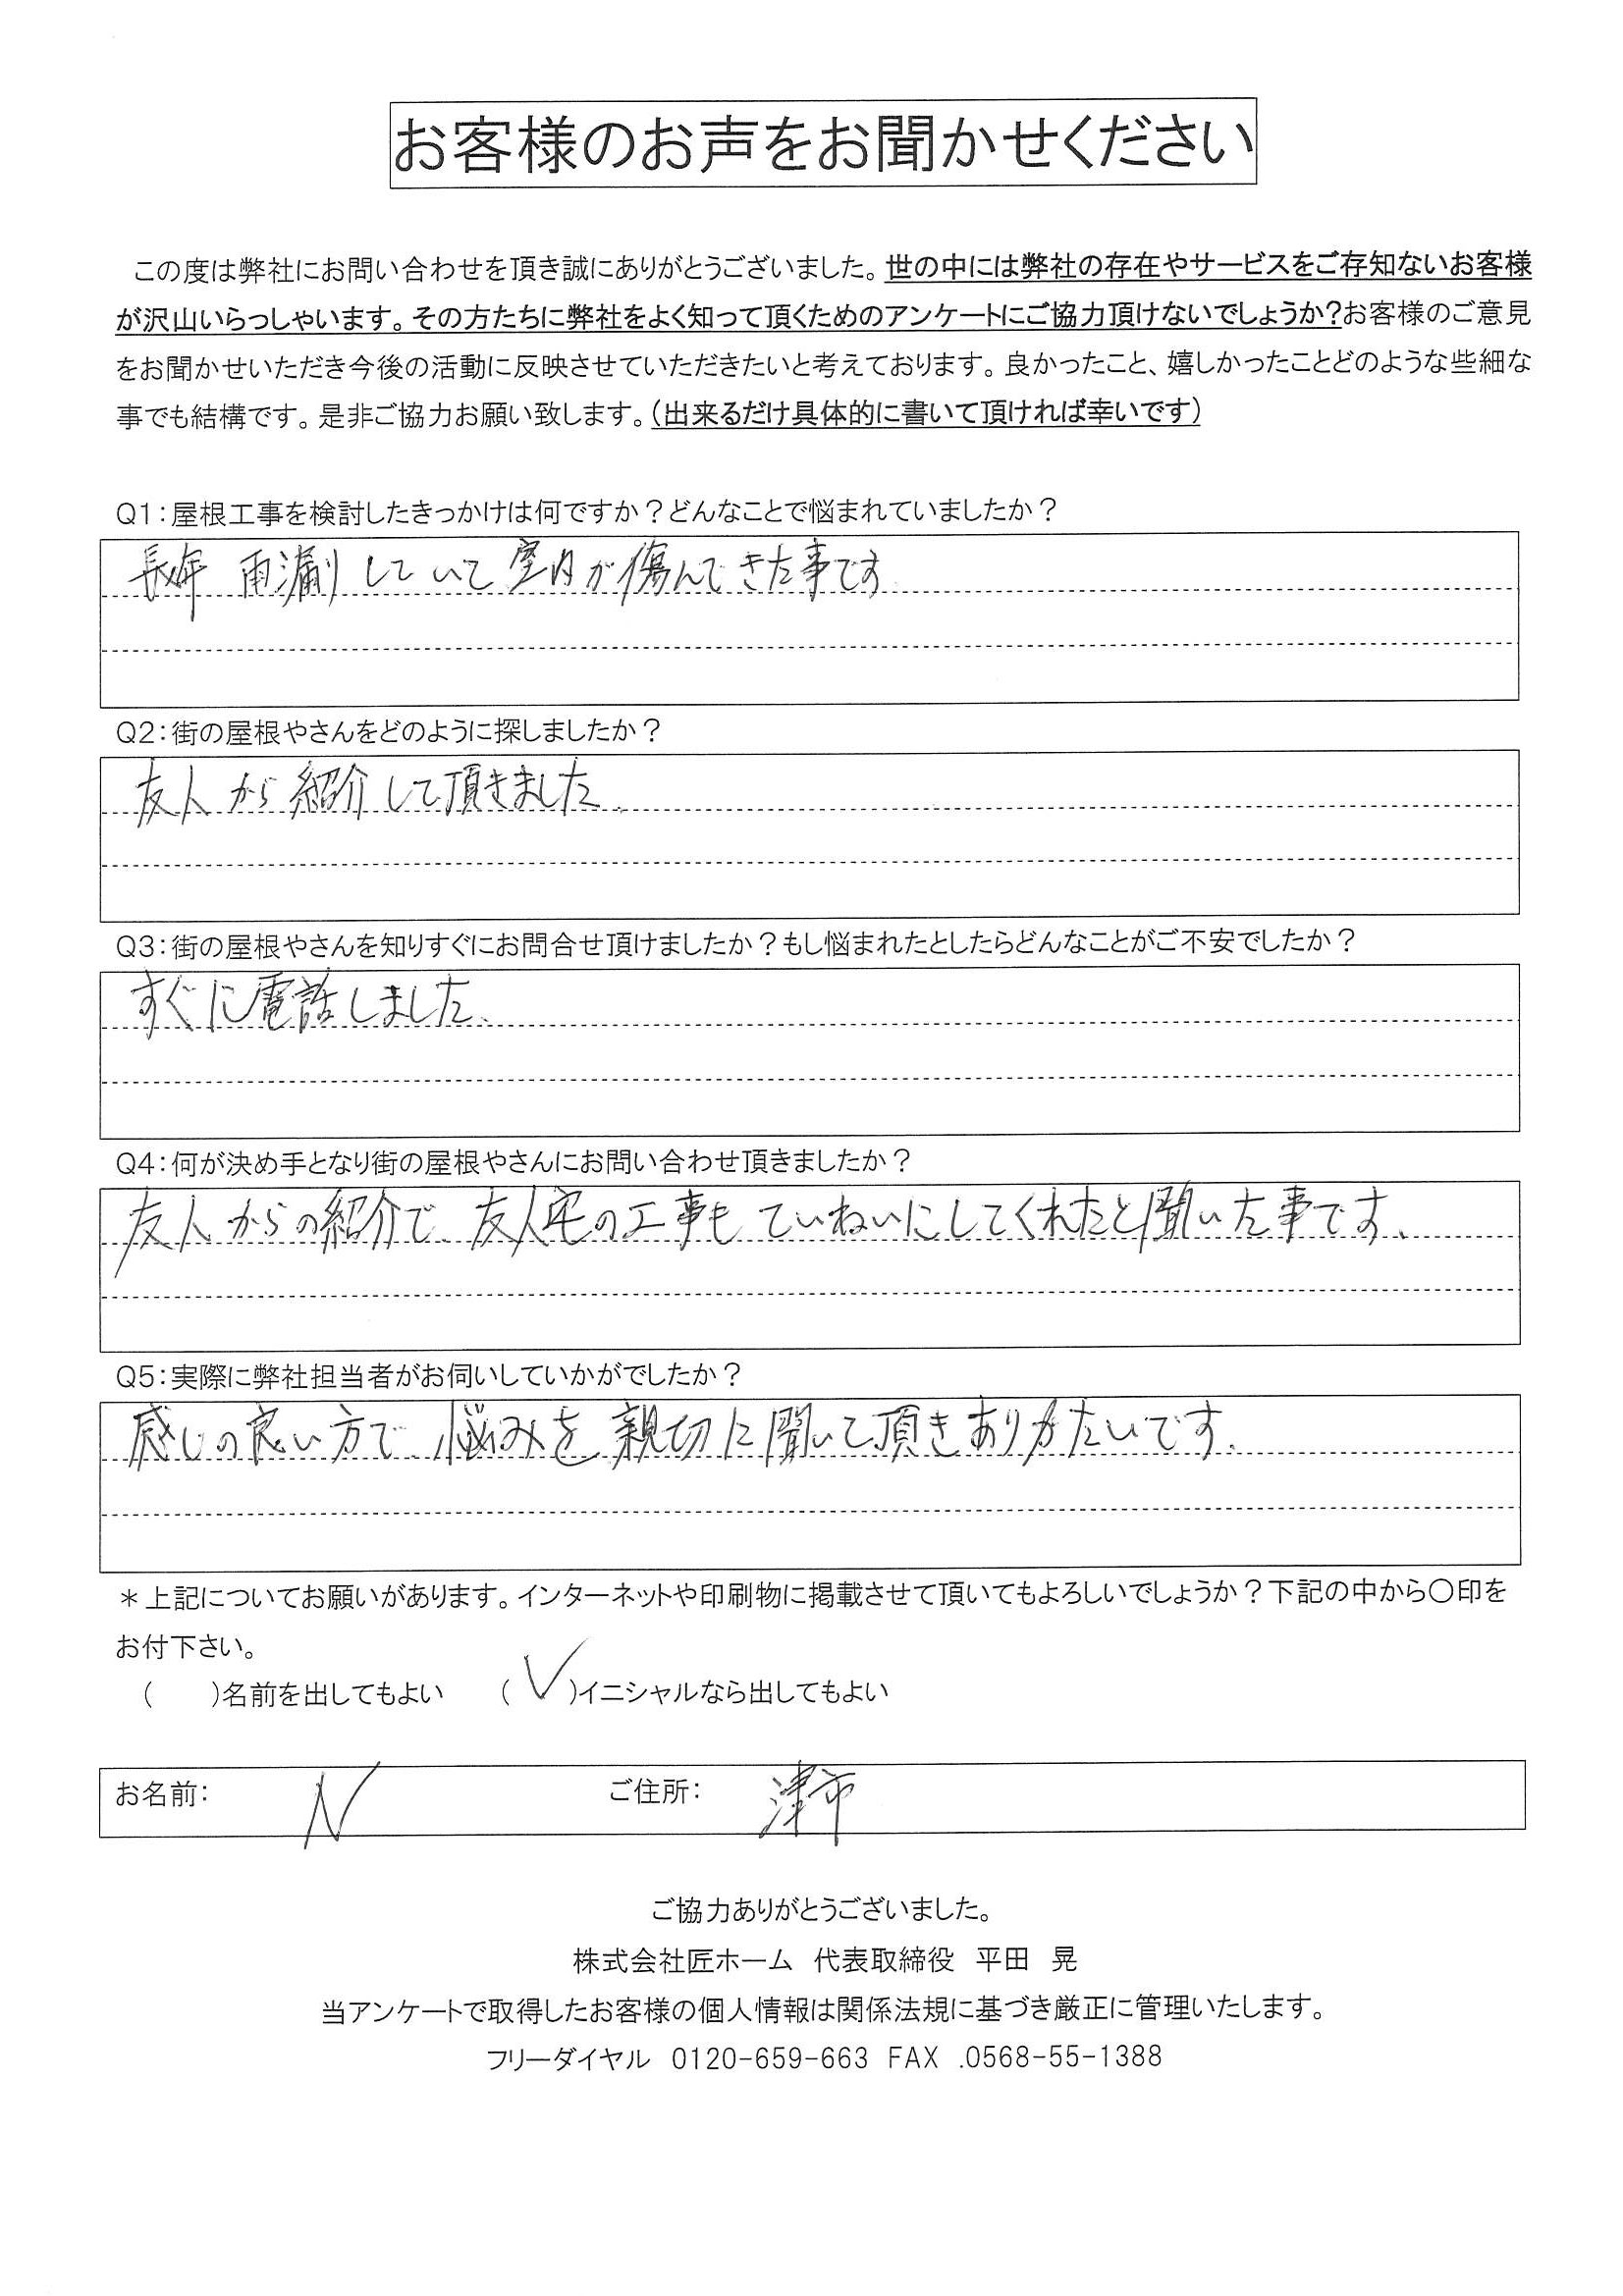 お客様のお声をお聞かせください
この度は弊社にお問い合わせを頂き誠にありがとうございました。世の中には弊社の存在やサービスをご存知ないお客様
が沢山いらっしゃいます。その方たちに弊社をよく知って頂くためのアンケートにご協力頂けないでしょうか？お客様のご意見
をお聞かせいただき今後の活動に反映させていただきたいと考えております。良かったこと、嬉しかったことどのような些細な
事でも結構です。是非ご協力お願い致します。（出来るだけ具体的に書いて頂ければ幸いです）
Q1：屋根工事を検討したきっかけは何ですか？どんなことで悩まれていましたか？
長年 雨漏りしていて室内が傷んできた事です
Q2：街の屋根やさんをどのように探しましたか？
友人から紹介して頂きました。
Q3：街の屋根やさんを知りすぐにお問合せ頂けましたか？もし悩まれたとしたらどんなことがご不安でしたか？
すぐに電話しました。
Q4：何が決め手となり街の屋根やさんにお問い合わせ頂きましたか？
友人からの紹介で、友人宅の工事もていねいにしてくれたと聞いた事です、
Q5：実際に弊社担当者がお伺いしていかがでしたか？
感じの良い方で、悩みを親切に聞いて頂きありがたいです。
＊上記についてお願いがあります。インターネットや印刷物に掲載させて頂いてもよろしいでしょうか？下記の中から〇印を
お付下さい。
（　　）名前を出してもよい　　（✓）イニシャルなら出してもよい
お名前：　N　　ご住所：　津市
ご協力ありがとうございました。
株式会社匠ホーム　代表取締役　平田　晃
当アンケートで取得したお客様の個人情報は関係法規に基づき厳正に管理いたします。
フリーダイヤル　0120-659-663　FAX　.0568-55-1388